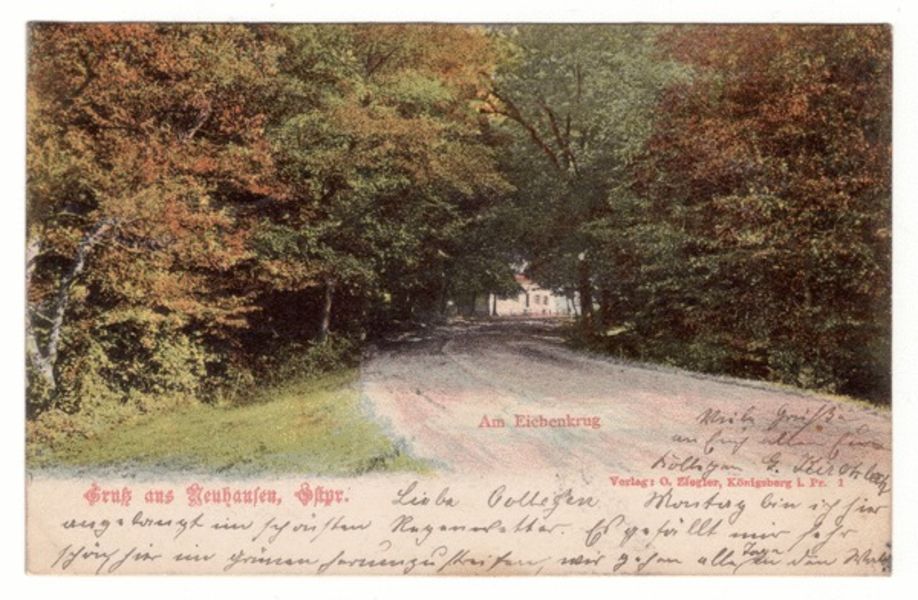 Am Eichenkrug
Viele Grüße
an Euch allen Eure
Kollegen G.
Gruß aus Neuhausen, Ostpr.
Verlag: O. Ziegler, Königsberg i. Pr. 1
Liebe Collegen Montag bin ich hier
angelangt im schönsten Regenwetter. Es gefällt mir sehr
schön hier im grünen herumzustreifen, wir gehen alle Tage in den Wald